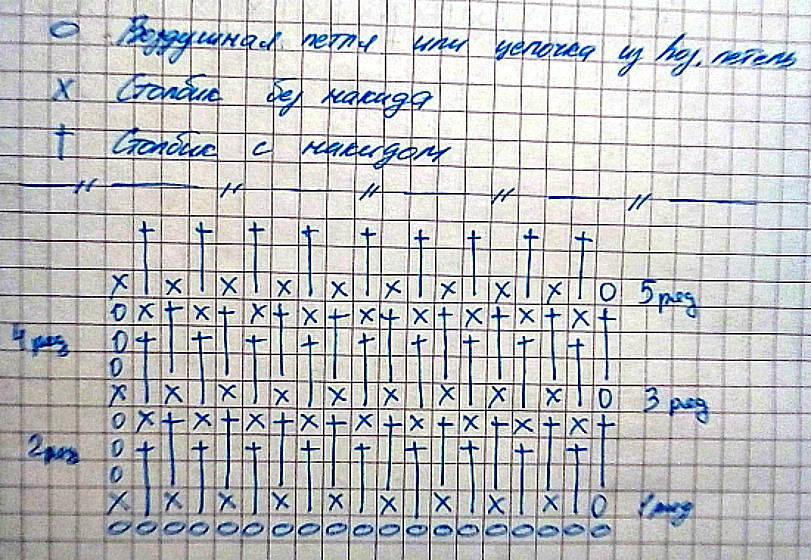 O Воздушная петля или цепочка из воз. петель
X Столбик без накида
† Столбик с накидом
5 ряд
4 ряд
3 ряд
2 ряд
1 ряд